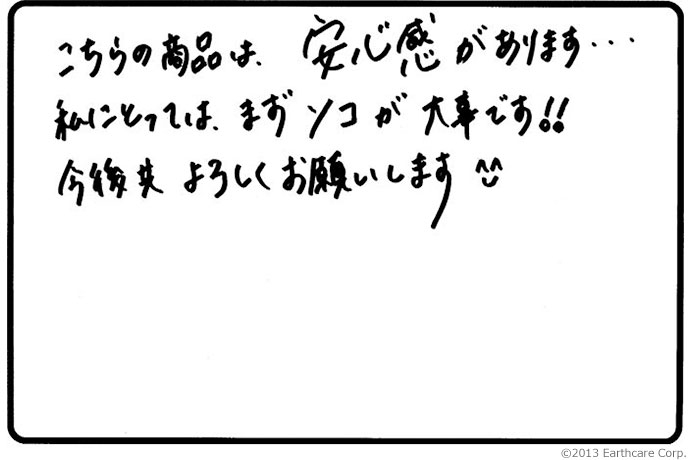 こちらの商品は、安心感があります・・・
私にとっては、まずソコが大事です!!
今後共よろしくお願いします^^
©2013 Earthcare Corp.